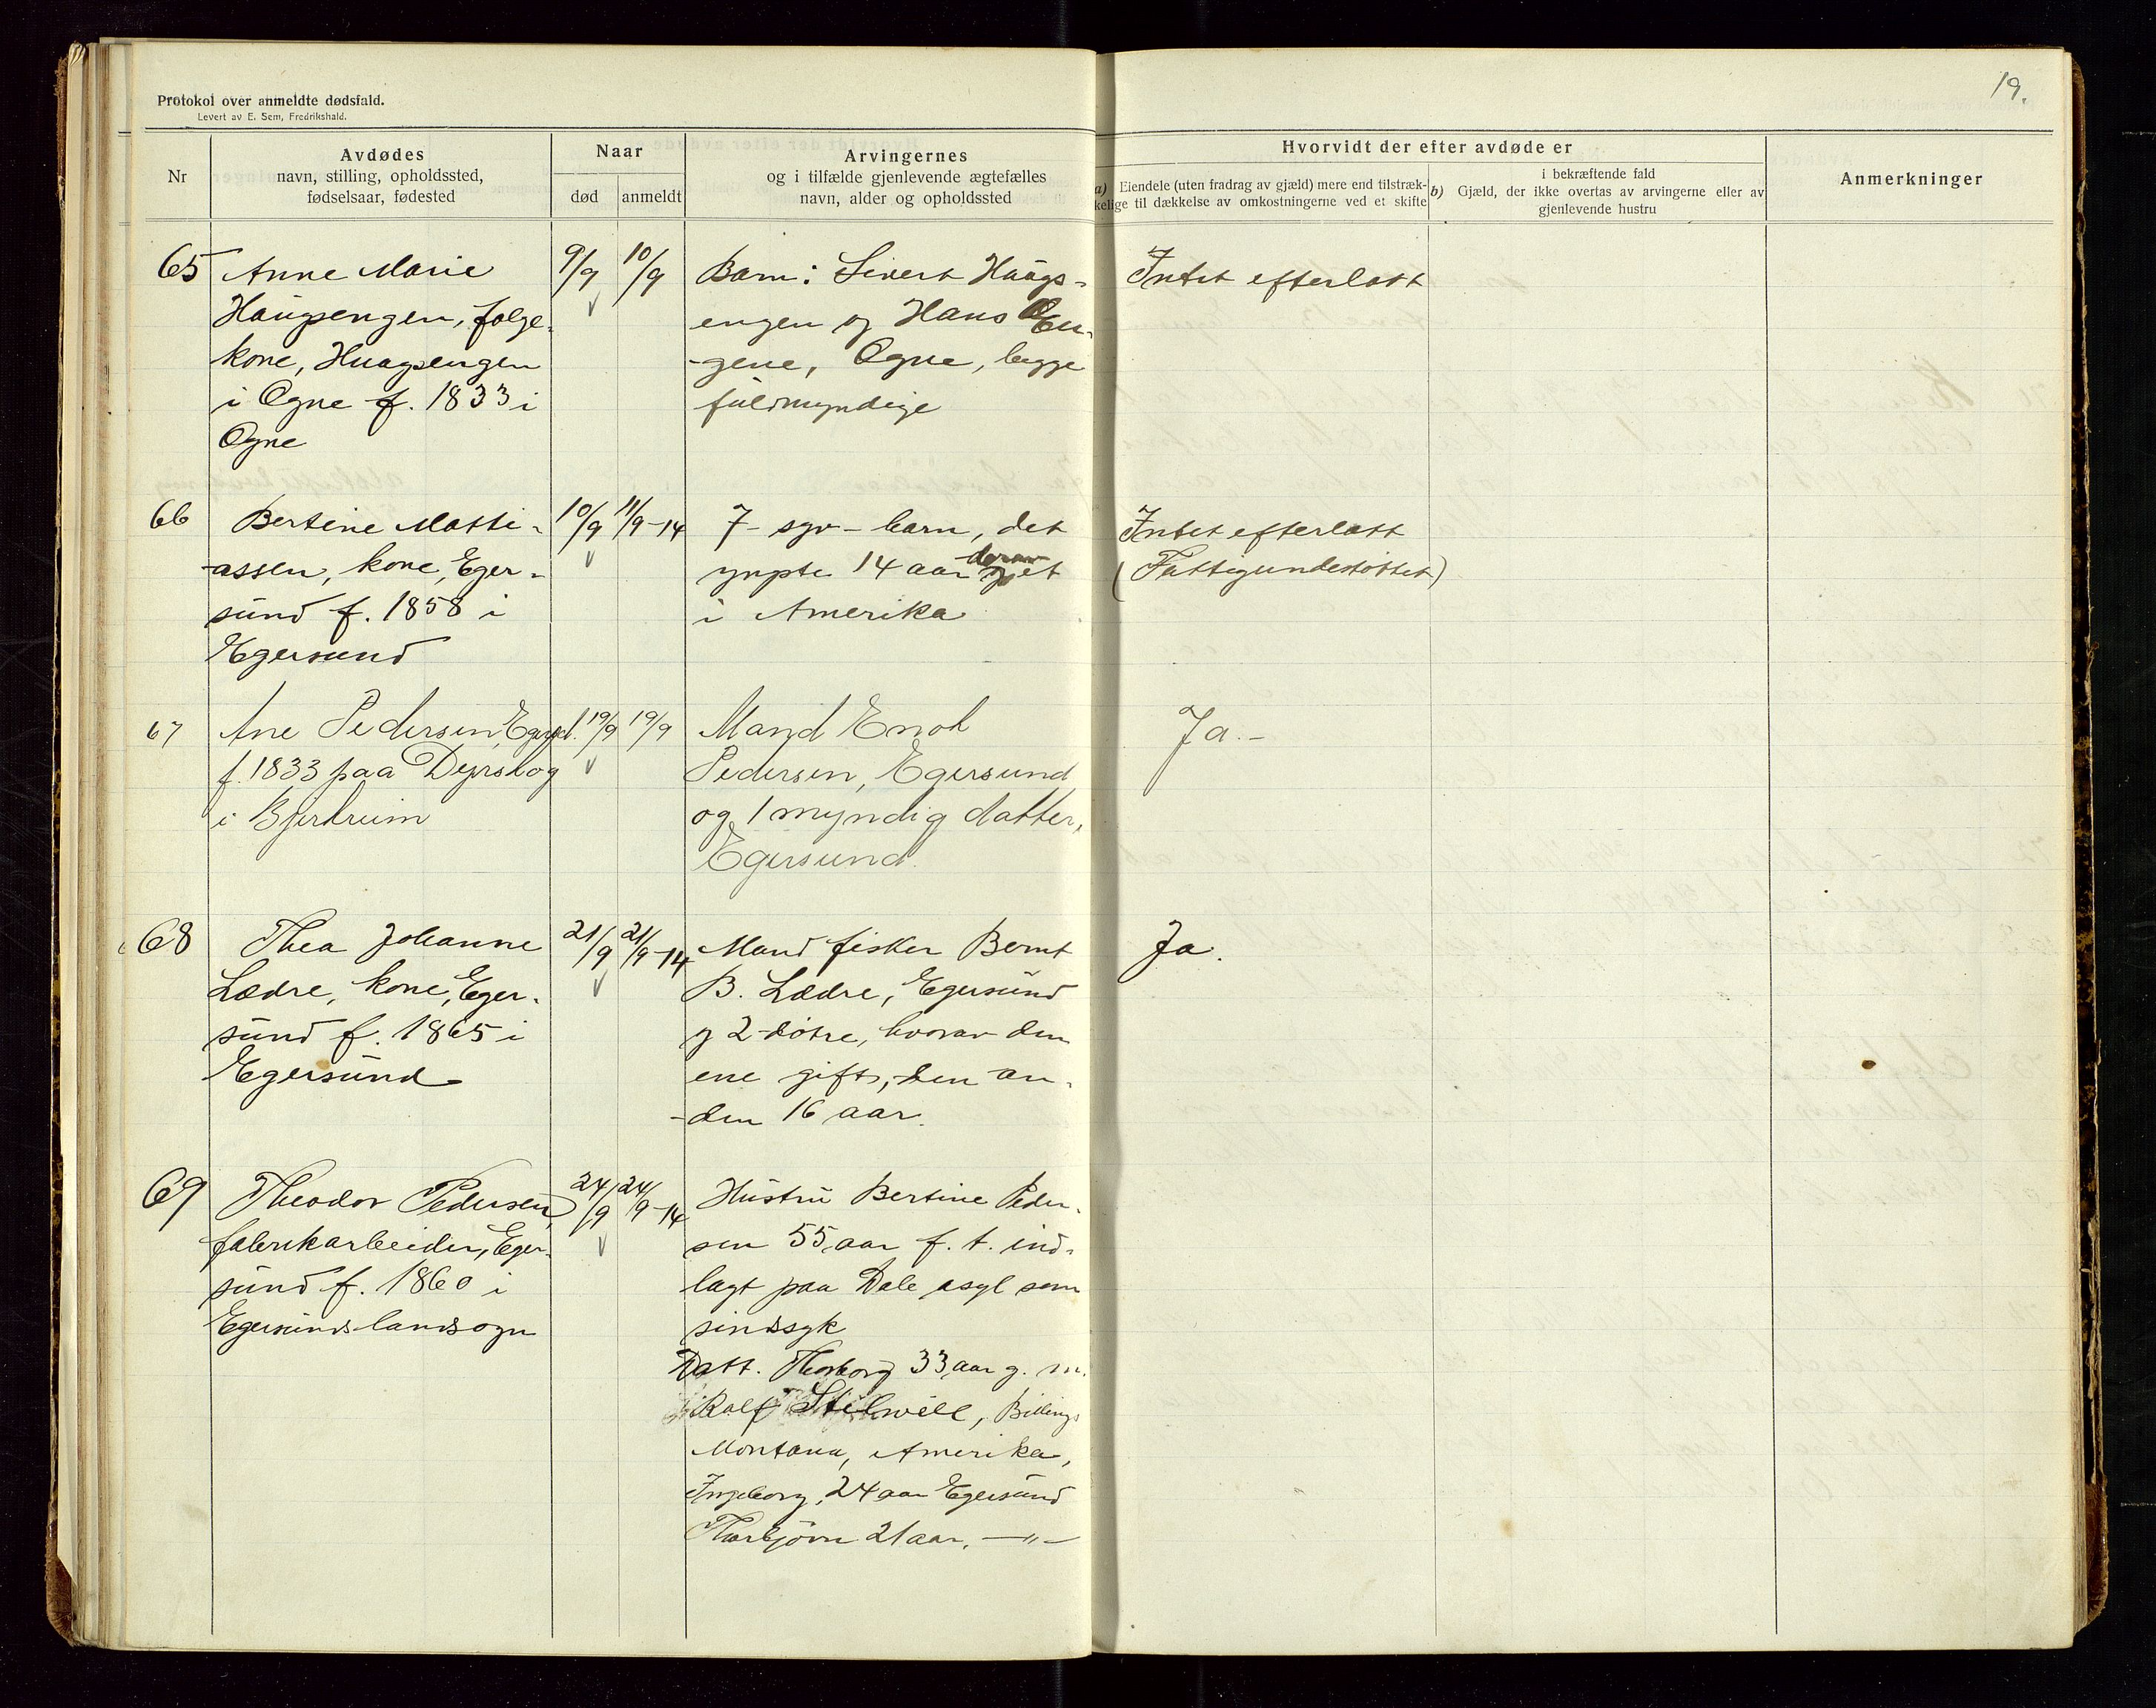 Protokol over anmeldte dødsfald.
Levert av E. Sem, Fredrikshald.
19.
Nr
Avdødes
navn, stilling, opholdssted,
fødselsaar, fødested
Naar
død
anmeldt
Arvingernes
og i tilfælde gjenlevende ægtefælles
navn, alder og opholdssted
Hvorvidt der efter avdøde er
a) Eiendele (uten fradrag av gjæld) mere end tilstræk-
kelige til dækkelse av omkostningerne ved et skifte
i bekræftende fald
b) Gjæld, der ikke overtas av arvingerne eller av
gjenlevende hustru
Anmerkninger
65
Anne Marie
Haugsengen, folge-
kone, Huagsengen
i Ogne f. 1833 i
Ogne
9/9
10/9
Barn: Sivert Haugs-
engen og Hans
Ogne, begge
fuldmyndige
Intet efterlatt
66
Bertine Matti-
assen, kone, Eger-
sund f. 1858 i
Egersund
10/9
11/9-14
7- syv- barn, det
yngste 14 aar derav et
i Amerika
Intet efterlatt
(Fattigunderstøttet)
67
Ane Pedersen, Egersd.
f. 1833 paa Dyrskog
i Bjerkreim
19/9
19/9
Mand Enok
Pedersen, Egersund
og 1 myndig datter,
Egersund.
Ja.-
68
Thea Johanne
Lædre, kone, Eger-
sund f. 1865 i
Egersund
21/9
21/9-14
Mand fisker Bernt
B. Lædre, Egersund
og 2 døtre, hvorav den
ene gift, den an-
den 16 aar.
Ja.
69
Theodor Pedersen,
fabrikarbeider, Eger-
sund f. 1860 i
Egersunds landsogn
24/9
24/9-14
Hustru Bertine Peder-
sen 55 aar f. t. ind-
lagt paa Dale asyl som
sindssyk
Datt. Thorborg 33 aar g. m.
Ralf Stilwell, Billings
Montana, Amerika,
Ingeborg, 24 aar Egersund
Thorbjørn 21 aar. —"—